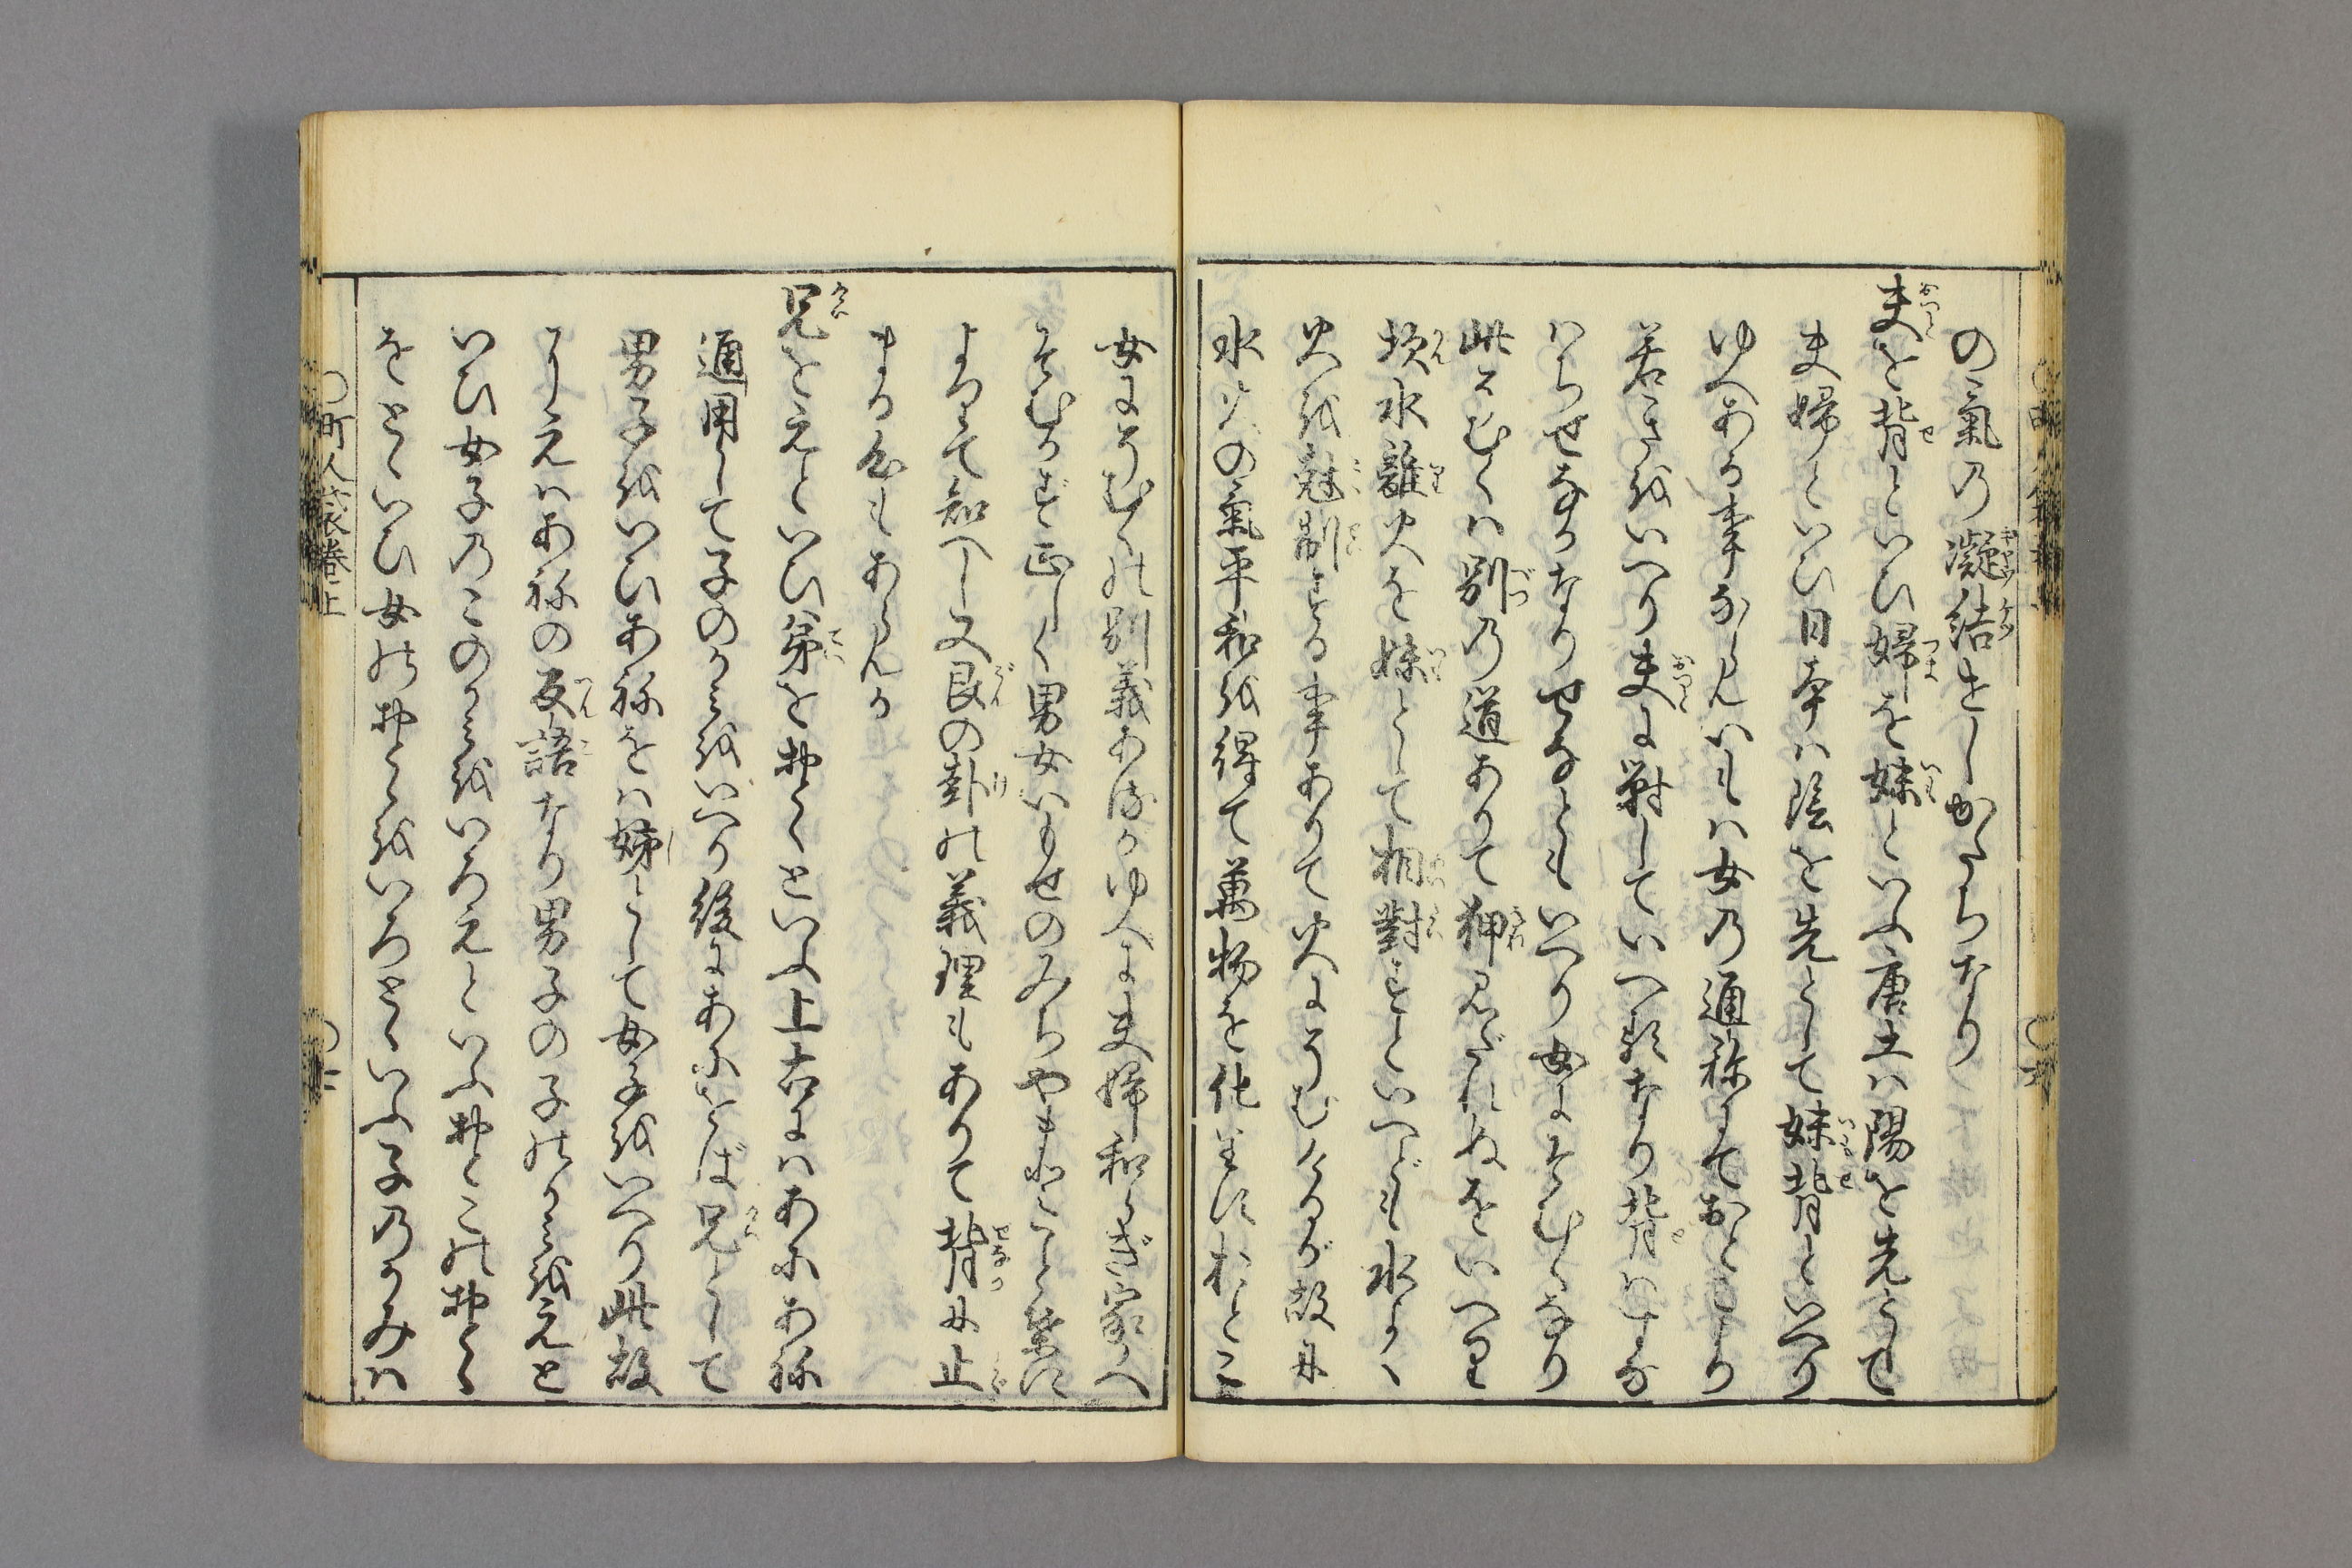 の氣乃凝結せしかたちなり
夫を背といひ婦を妹といふ唐土ハ陽を先として
夫婦といひ日本ハ陰を先として妹背といへり
ゆへある事ならんいもハ女の通称にておとこより
若きをいへり夫に対していへる称なり背ハせな
ハちせなかなりせなともいへり女にそむくなり
此そむくハ別乃道ありて狎みだれぬをいへり
坎水離火を妹として相對すといへども水よく
火を尅制する事ありて火にそむくるが故に
水火の氣平和を得て萬物を化生すおとこ
女にそむくの別義あるかゆへに夫婦和らぎ家へ
そむかず正しく男女いもせのみちやむことなきに
よつて知へし又艮の卦の義理もありて背に止
まる象もあらんか
兄をえといひ弟をおとといふ上古にハあにあね
通用して子のかミをいへり後にあにをば兄として
男子をいひあねをハ姉として女子をいへり此故
にえハあねの反語なり男子の子のかミをえと
いひ女子乃このかミをいろえといふおとこのおとゝ
をとゝいひ女のおとゝをいろとゝいふ子乃かみハ
町人嚢巻上